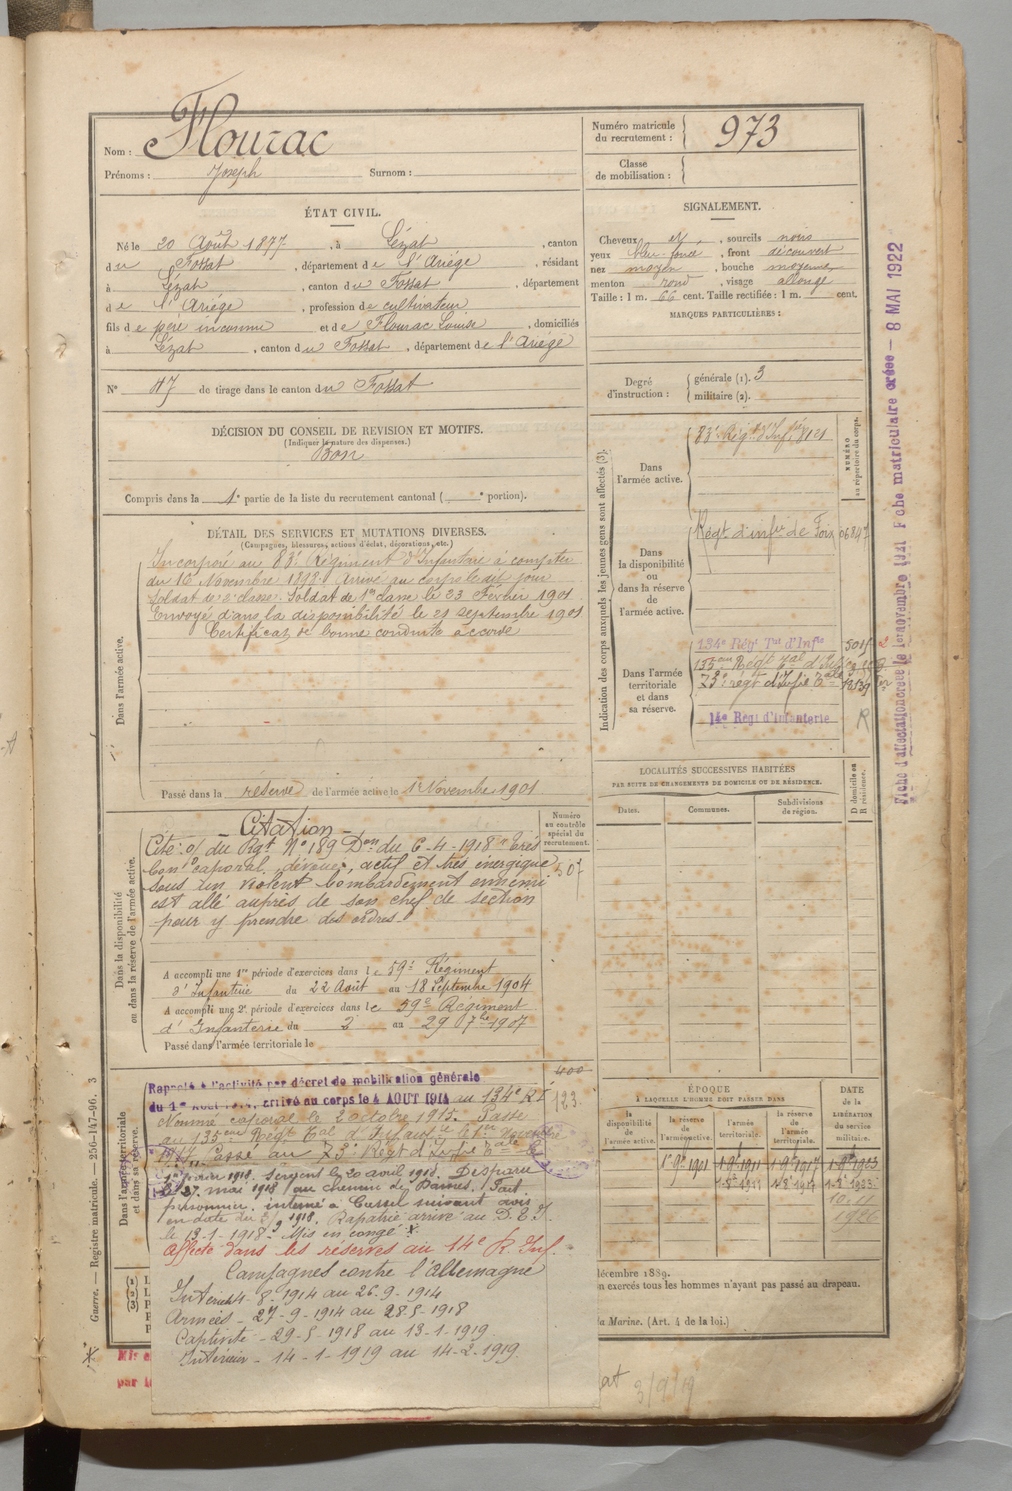 Nom : Flourac
Prénoms : Joseph Surnom :
Numéro matricule du recrutement : 973
Classe de mobilisation :
ÉTAT CIVIL.
Né le 20 Août 1877, à Lézat, canton
du Fossat, département de l'Ariège, résidant
à Lézat, canton du Fossat, département
de l'Ariège, profession de cultivateur
fils de père inconnu et de Flourac Louise, domiciliés
à Lézat, canton du Fossat, département de l'Ariège
N° 47 de tirage dans le canton du Fossat
SIGNALEMENT.
Cheveux et, sourcils noirs
yeux bleu foncé, front découvert
nez moyen, bouche moyenne
menton rond, visage allongé
Taille : 1 m. 66 cent. Taille rectifiée : 1 m. cent.
MARQUES PARTICULIÈRES :
Degré d'instruction : générale (1). 3
militaire (2).
DÉCISION DU CONSEIL DE REVISION ET MOTIFS.
(Indiquer la nature des dispenses.)
Bon
Compris dans la 1e partie de la liste du recrutement cantonal ( e portion).
DÉTAIL DES SERVICES ET MUTATIONS DIVERSES.
(Campagnes, blessures, actions d'éclat, décorations, etc.)
Dans l'armée active.
Incorporé au 83e Régiment d'Infanterie à compter
du 16 Novembre 1898. Arrivé au corps le dit jour
Soldat de 2e classe. Soldat de 1re classe le 23 Février 1901
Envoyé dans la disponibilité le 21 Septembre 1901
Certificat de bonne conduite accordé
Passé dans la réserve de l'armée active le 1 Novembre 1901
Indication des corps auxquels les jeunes gens sont affectés (3).
NUMÉRO au répertoire du corps.
Dans l'armée active.
83e Régt d'Infie 3121
Dans la disponibilité ou dans la réserve de l'armée active.
Régt d'infie de Foix 06847
Dans l'armée territoriale et dans sa réserve.
134e Régt Tal d'Infie
135eme Régt Tal d'Inf
73e régt d'Infie Tale
14e Régt d'Infanterie R
LOCALITÉS SUCCESSIVES HABITÉES
PAR SUITE DE CHANGEMENTS DE DOMICILE OU DE RÉSIDENCE.
Dates. Communes. Subdivisions de région. D domicile ou R résidence.
Dans la disponibilité ou dans la réserve de l'armée active.
Numéro au contrôle spécial du recrutement.
507
Citation
Cité : o/ du Rgt N° 189 Don du 6-4-1918 "très
bon caporal, dévoué, actif et très énergique
sous un violent bombardement ennemi
est allé auprès de son chef de section
pour y prendre des ordres."
A accompli une 1re période d'exercices dans le 59e Régiment
d'Infanterie du 22 Août au 18 Septembre 1904
A accompli une 2e période d'exercices dans le 59e Régiment
d'Infanterie du 2 au 29 7bre 1907
Passé dans l'armée territoriale le
Dans l'armée territoriale et dans sa réserve.
400
123.
Rappelé à l'activité par décret de mobilisation générale
du 1er Août 1914, arrivé au corps le 4 AOUT 1914 au 134e R I
Nommé caporal le 2 octobre 1915. Passé
au 135eme Régt Tal d'Infanterie le 1er Novembre
1917. Passé au 73e Régt d'Infie Tale le
1er février 1918. Sergent le 20 avril 1918. Disparu
le 27 mai 1918 au chemin de Dames. Fait
prisonnier. interné à Cassel suivant avis
en date du 1918. Rapatrié arrivé au D. E. J.
Mis en congé
Affecté dans les réserves au 14e R. Inf.
Campagnes contre l'Allemagne
Intérieur 4-8-1914 au 26-9-1914
Armées - 27-9-1914 au 28 5-1918
Captivité - 29-5 1918 au 13-1-1919
Intérieur - 14-1-1919 au 14-2-1919.
ÉPOQUE
À LAQUELLE L'HOMME DOIT PASSER DANS
la disponibilité de l'armée active. la réserve de l'armée active. l'armée territoriale. la réserve de l'armée territoriale.
DATE de la LIBÉRATION du service militaire.
décembre 1889.
n exercés tous les hommes n'ayant pas passé au drapeau.
la Marine. (Art. 4 de la loi.)
3/9/19
Guerre. — Registre matricule. — 256-147-96. 3
Fiche matriculaire créée — 8 MAI 1922